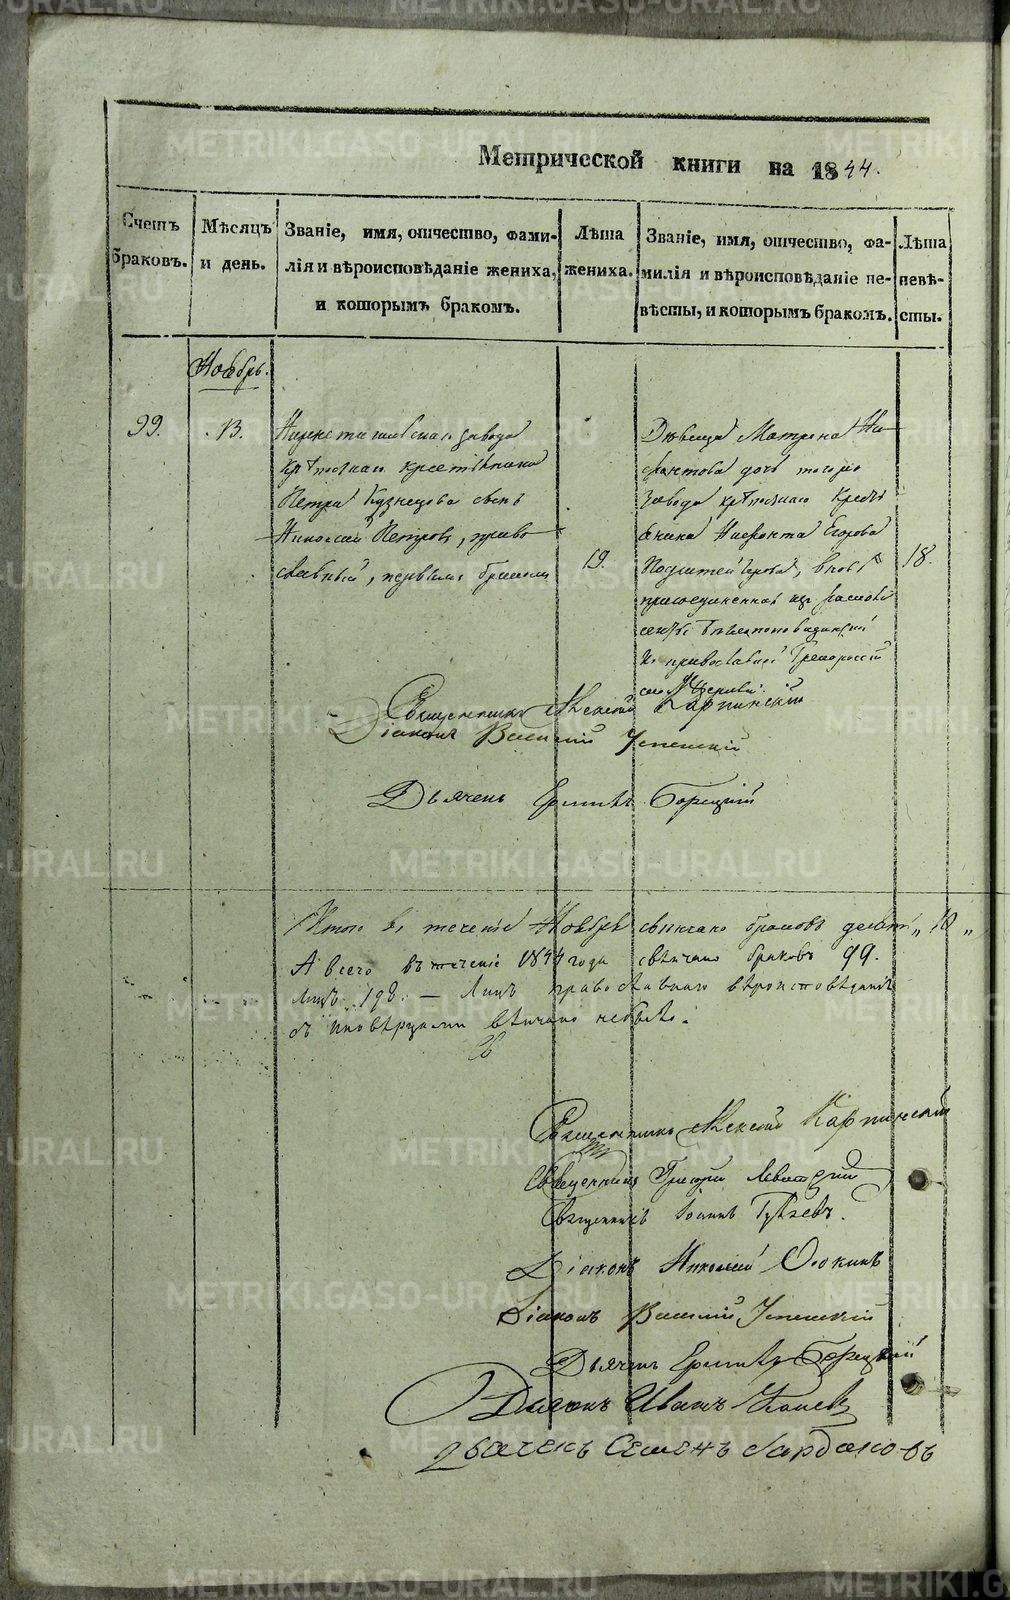 METRIKI.GASO-URAL.RU
Метрической книги на 1844.
Счетъ браковъ.
Мѣсяцъ и день.
Званіе, имя, отчество, фами-
лія и вѣроисповѣданіе жениха,
и которымъ бракомъ.
Лѣта
жениха.
Званіе, имя, отчество, фа-
милія и вѣроисповѣданіе не-
вѣсты, и которымъ бракомъ.
Лѣта
невѣ-
сты.
Ноябрь.
99.
13.
завода
крѣпостнаго крестьянина
Петра Кузнецова сынъ
Николай Петровъ, право
славный, первымъ бракомъ
19.
Дѣвица Матрона Ни
фантова дочь тогожъ
завода крѣпостнаго Кресть
янина Нифонта Егорова
вновь
присоединенная изъ раскола
къ православной Грекороссій
ской Церкви.
18.
Священникъ Алексій Карпинскій
Діаконъ Василій Успенскій
Дьячекъ Борецкій
Итого въ теченіе Ноября свѣнчано браковъ десять „ 10 „
А всего въ теченіе 1844 года свѣнчано браковъ 99.
Лицъ 198. — Лицъ православнаго вѣроисповѣданія
съ иновѣрцами вѣнчано небыло.
Священникъ Алексій Карпинскій
Священникъ Григорій Левитскій
Священникъ Іоаннъ
Діаконъ Николай
Діаконъ Василій Успенскій
Дьячекъ Борецкій
Дьячекъ Иванъ
Дьячекъ Семенъ